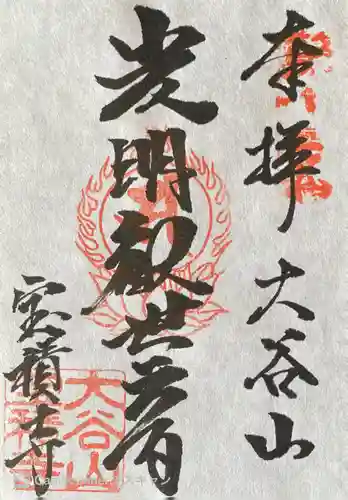 奉拝 大谷山
光明観世音
宝積寺
大谷山